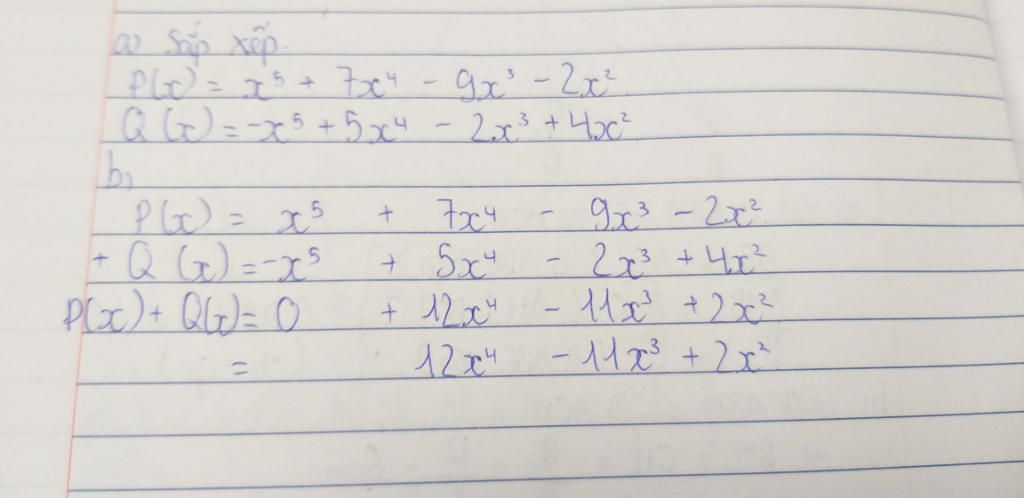 a) Sắp xếp.
P(x) = x⁵ + 7x⁴ - 9x³ - 2x²
Q(x) = -x⁵ + 5x⁴ - 2x³ + 4x²
b)
P(x) = x⁵ + 7x⁴ - 9x³ - 2x²
+ Q(x) = -x⁵ + 5x⁴ - 2x³ + 4x²
P(x) + Q(x) = 0 + 12x⁴ - 11x³ + 2x²
= 12x⁴ - 11x³ + 2x²